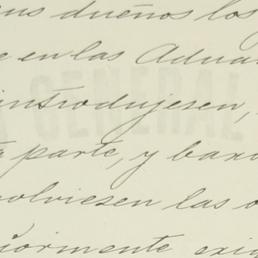 sus dueños los
e en las Adua
introdujesen,
a parte, y baxo
volviesen las
riormente exi
GENERAL